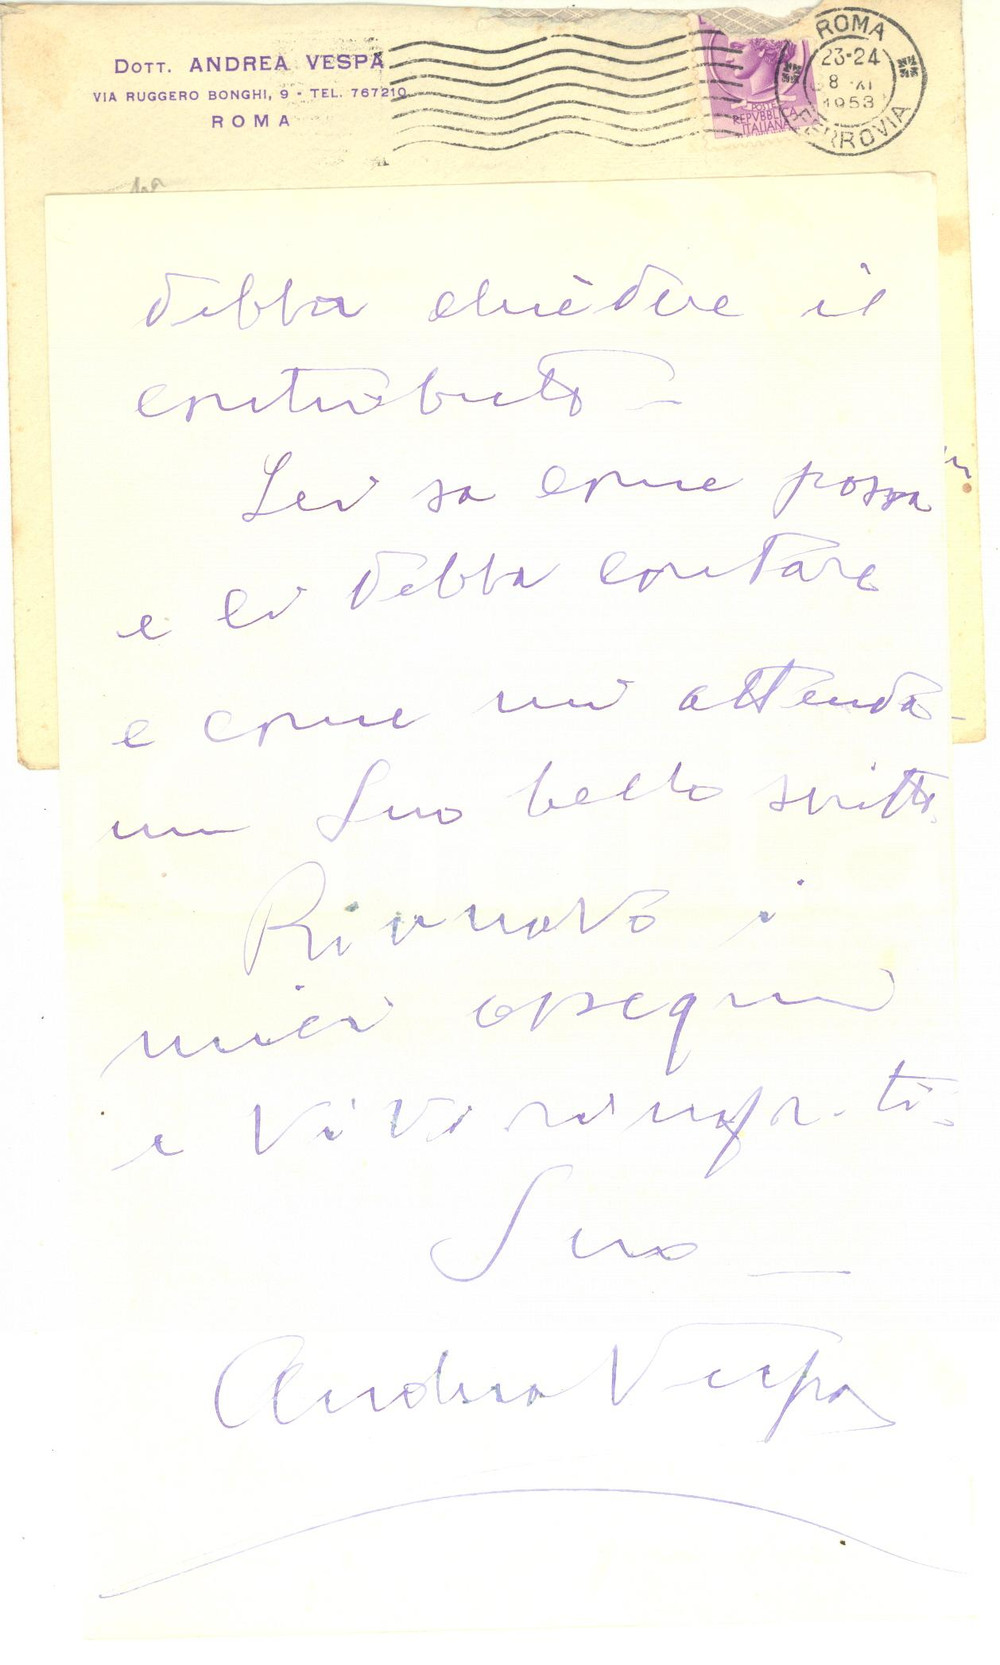 DOTT. ANDREA VESPA
VIA RUGGERO BONGHI, 9 - TEL. 767210
ROMA
ROMA
23-24
8 XI
1953
FERROVIA
POSTE
REPVBBLICA
ITALIANA
debba chiedere il
contributo -
Lei sa come possa
e ci debba contare
e come mi attenda
un Suo bello scritto.
Rinnovo i
miei ossequi
e vivi ringr. ti.
Suo
Andrea Vespa